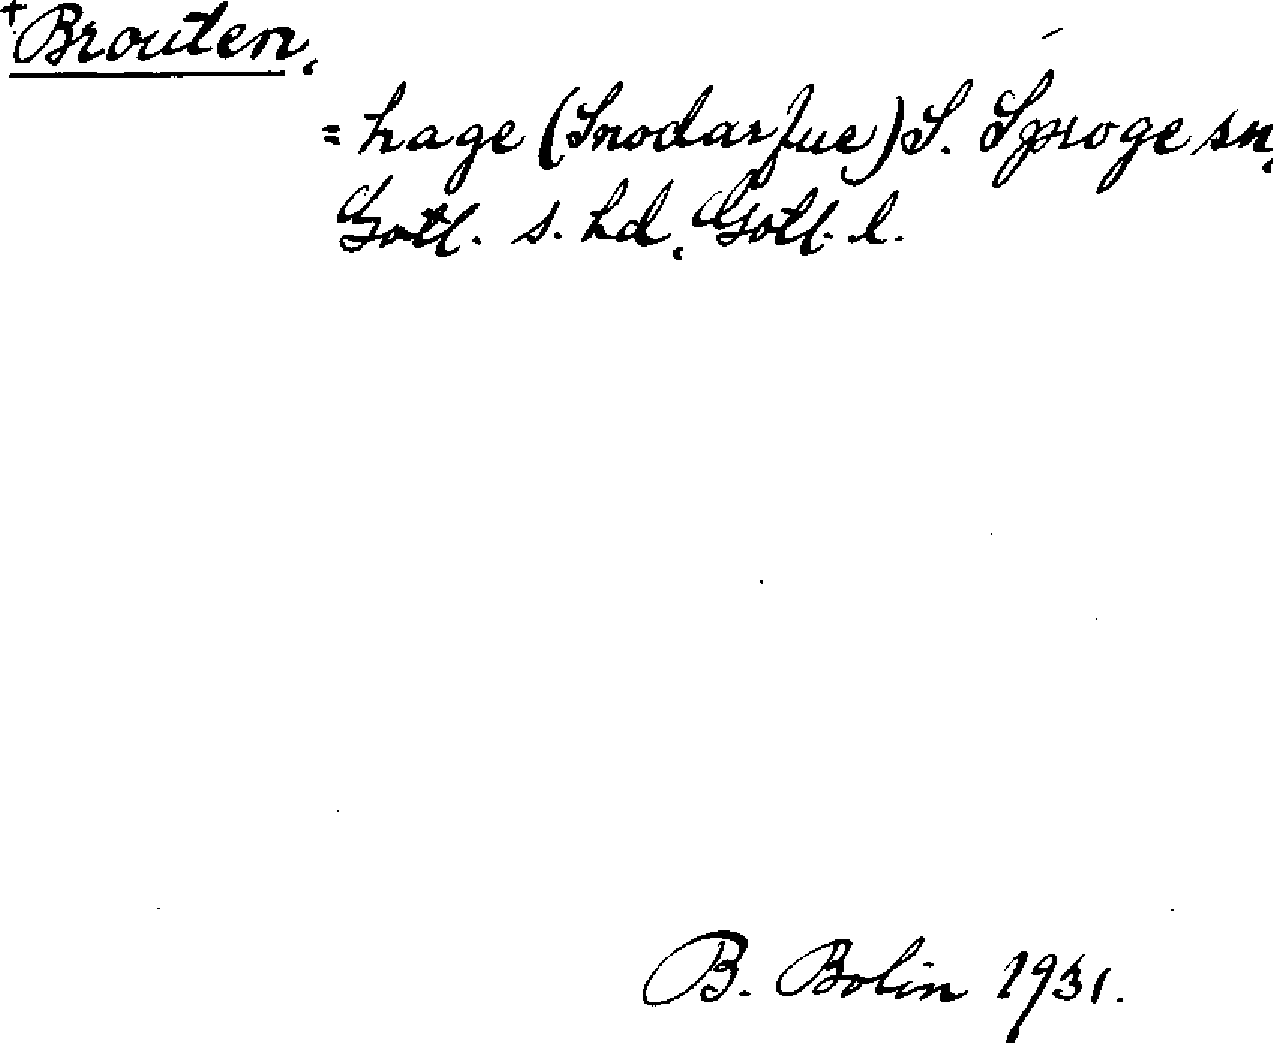 + Brouten,
= hage (Snodarfue) S. Sproge sn,
Gotl. s. hd, Gotl. l.
B. Bolin 1931.